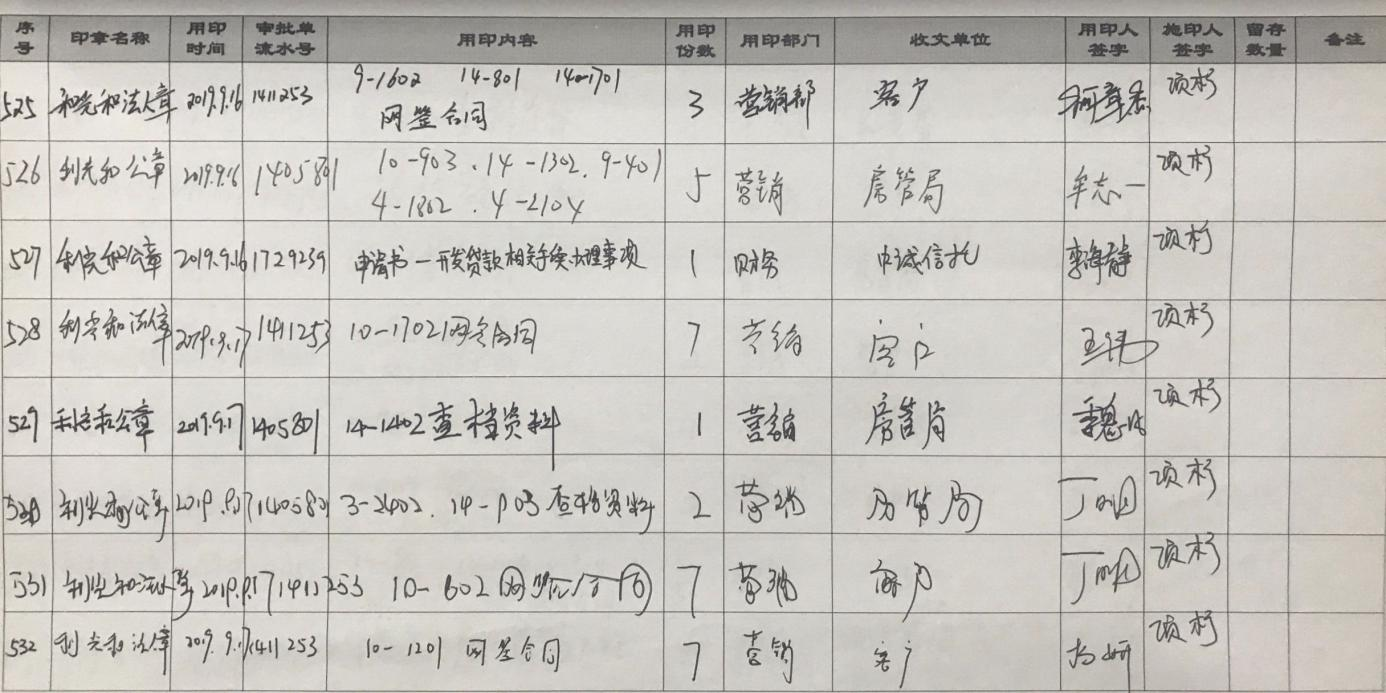 序号 印章名称 用印时间 审批单流水号 用印内容 用印份数 用印部门 收文单位 用印人签字 施印人签字 留存数量 备注
525 利光和法人章 2019.9.16 1411253 9-1602 14-801 14-1701 网签合同 3 营销部 客户 项杉
526 利光和公章 2019.9.16 1405801 10-903、14-1302、9-401 4-1802、4-2104 5 营销 房管局 牟志一 项杉
527 利光和公章 2019.9.16 1729239 申请书—开发贷款相关手续办理事项 1 财务 中诚信托 李海静 项杉
528 利光和法人章 2019.9.17 1411253 10-1702网签合同 7 营销 客户 王伟 项杉
529 利光和公章 2019.9.17 1405801 14-1402查档资料 1 营销 房管局 项杉
530 利光和公章 2019.9.17 1405801 3-2402、14-903查档资料 2 营销 房管局 丁明 项杉
531 利光和法人章 2019.9.17 1411253 10-602网签合同 7 营销 客户 丁明 项杉
532 利光和法人章 2019.9.17 1411253 10-1201 网签合同 7 营销 客户 杨妍 项杉